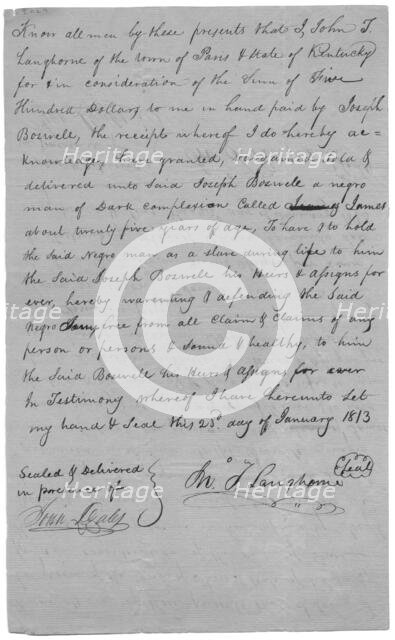 Know all men by these presents that I, John T.
Langhorne of the town of Paris & state of Kentucky
for & in consideration of the Sum of Five
Hundred Dollars to me in hand paid by Joseph
Boswell, the receipts whereof I do hereby ac=
=knowledge, have granted, bargained, sold &
delivered unto Said Joseph Boswell a negro
man of Dark complexion Called James
about twenty five years of age, To have & to hold
the said Negro man as a slave during life to him
the Said Joseph Boswell his Heirs & assigns for
ever, hereby warenting & defending the Said
Negro free from all Claim & Claims of any
person or persons & sound & healthy, to him
the Said Boswell his Heirs & assigns for ever
In Testimony whereof I have hereunto Set
my hand & Seal this 23d day of January 1813
Sealed & Delivered
in presence of
Jno. T. Langhorne
Seal
Heritage
Images